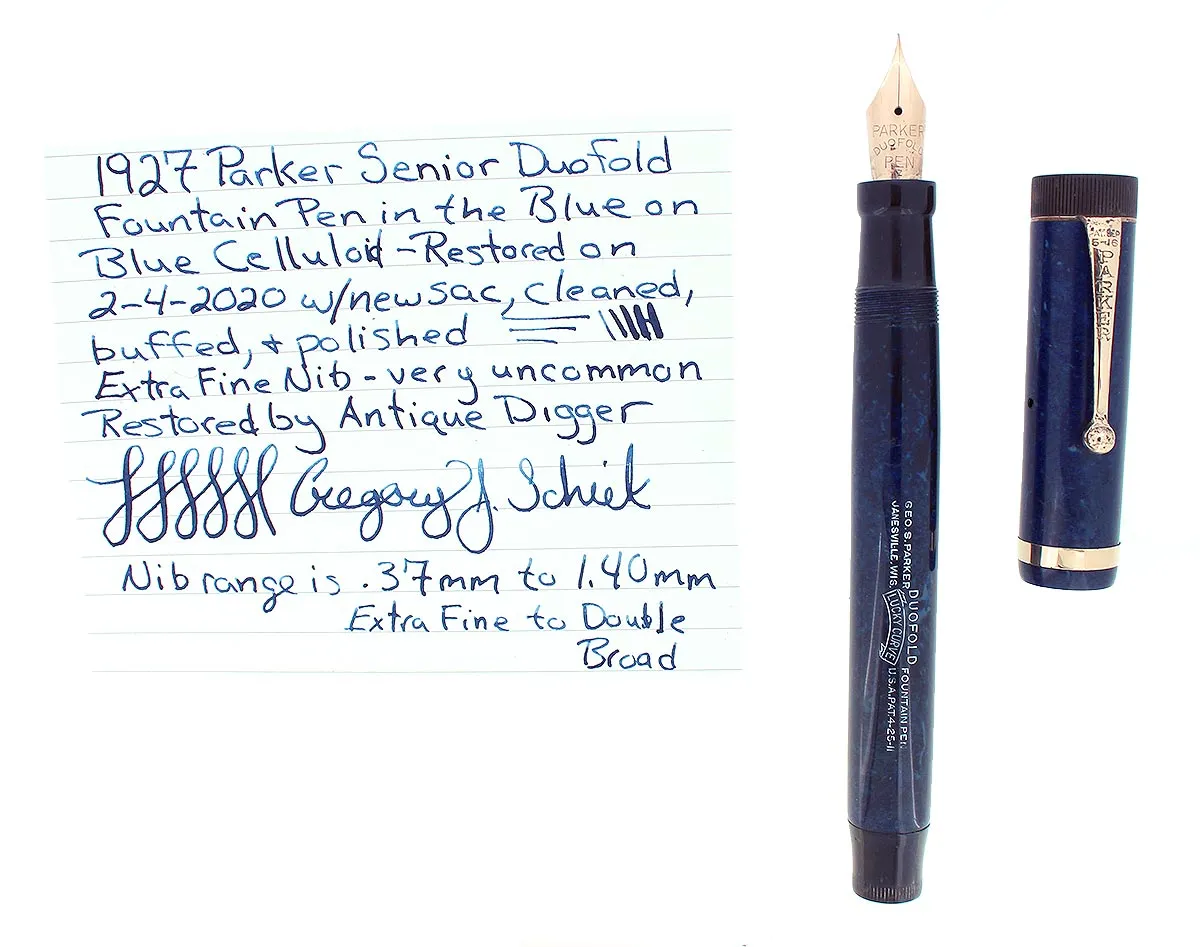 1927 Parker Senior Duofold
Fountain Pen in the Blue on
Blue Celluloid - Restored on
2-4-2020 w/new sac, cleaned,
buffed, + polished
Extra Fine Nib - very uncommon
Restored by Antique Digger
Gregory J. Schiek
Nib range is .37mm to 1.40mm
Extra Fine to Double
Broad
PARKER
DUOFOLD
PEN
PARKER
GEO. S. PARKER DUOFOLD FOUNTAIN PEN
JANESVILLE, WIS. LUCKY CURVE U.S.A. PAT. 4-25-11